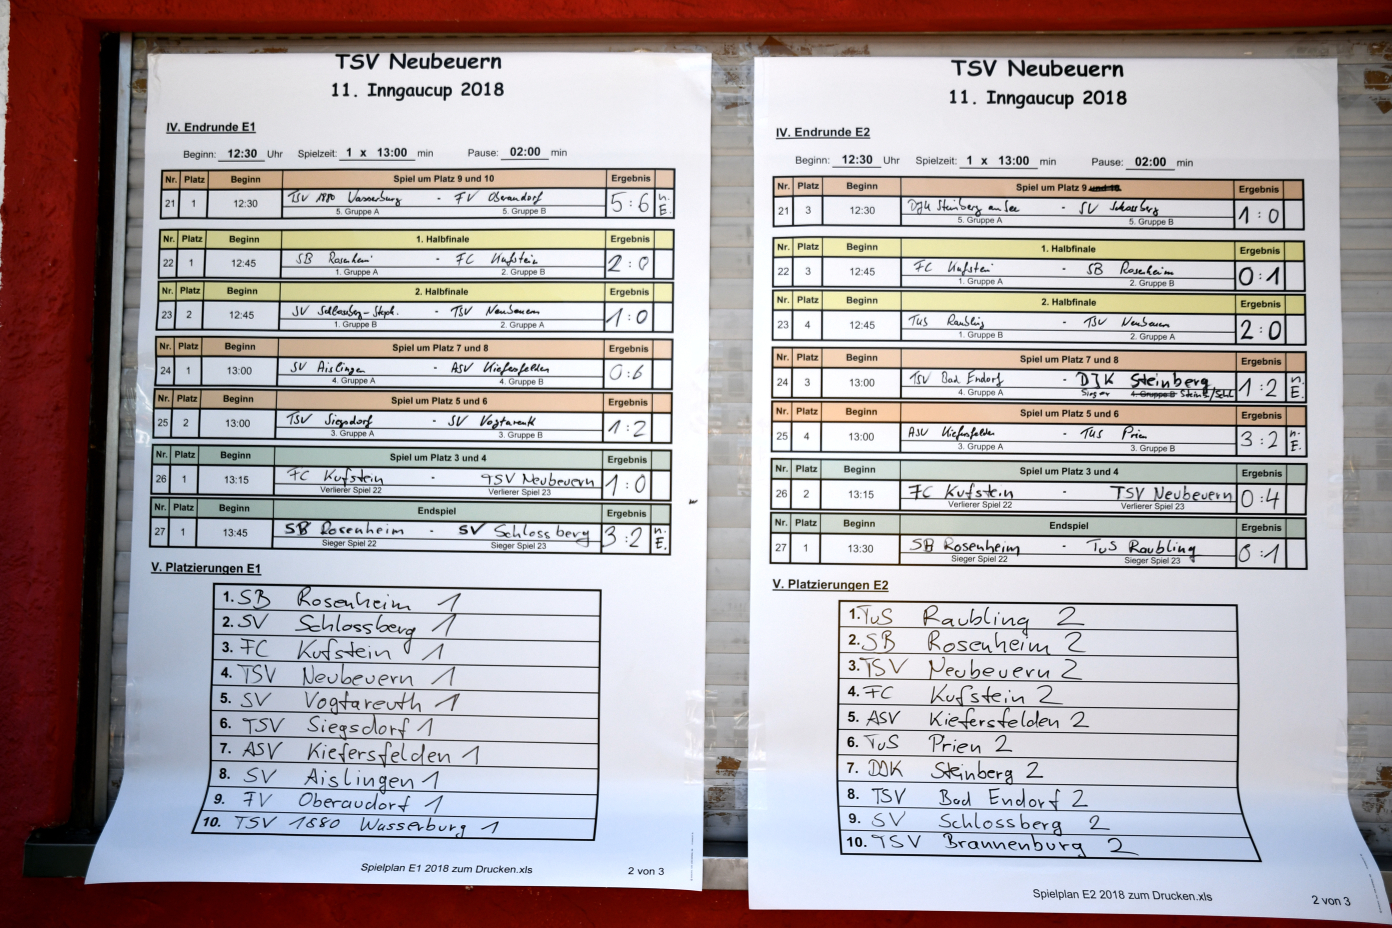 TSV Neubeuern
11. Inngaucup 2018
IV. Endrunde E1
Beginn: 12:30 Uhr Spielzeit: 1 x 13:00 min Pause: 02:00 min
Nr. Platz Beginn Spiel um Platz 9 und 10 Ergebnis
21 1 12:30 TSV 1880 Wasserburg - FV Oberaudorf 5:6 n. E.
5. Gruppe A 5. Gruppe B
Nr. Platz Beginn 1. Halbfinale Ergebnis
22 1 12:45 SB Rosenheim - FC Kufstein 2:0
1. Gruppe A 2. Gruppe B
Nr. Platz Beginn 2. Halbfinale Ergebnis
23 2 12:45 SV Schlossberg-Steph. - TSV Neubeuern 1:0
1. Gruppe B 2. Gruppe A
Nr. Platz Beginn Spiel um Platz 7 und 8 Ergebnis
24 1 13:00 SV Aislingen - ASV Kiefersfelden 0:6
4. Gruppe A 4. Gruppe B
Nr. Platz Beginn Spiel um Platz 5 und 6 Ergebnis
25 2 13:00 TSV Siegsdorf - SV Vogtareuth 1:2
3. Gruppe A 3. Gruppe B
Nr. Platz Beginn Spiel um Platz 3 und 4 Ergebnis
26 1 13:15 FC Kufstein - TSV Neubeuern 1:0
Verlierer Spiel 22 Verlierer Spiel 23
Nr. Platz Beginn Endspiel Ergebnis
27 1 13:45 SB Rosenheim - SV Schlossberg 3:2 n. E.
Sieger Spiel 22 Sieger Spiel 23
V. Platzierungen E1
1. SB Rosenheim 1
2. SV Schlossberg 1
3. FC Kufstein 1
4. TSV Neubeuern 1
5. SV Vogtareuth 1
6. TSV Siegsdorf 1
7. ASV Kiefersfelden 1
8. SV Aislingen 1
9. FV Oberaudorf 1
10. TSV 1880 Wasserburg 1
Spielplan E1 2018 zum Drucken.xls 2 von 3
TSV Neubeuern
11. Inngaucup 2018
IV. Endrunde E2
Beginn: 12:30 Uhr Spielzeit: 1 x 13:00 min Pause: 02:00 min
Nr. Platz Beginn Spiel um Platz 9 und 10 Ergebnis
21 3 12:30 DJK Steinberg am See - SV Schlossberg 1:0
5. Gruppe A 5. Gruppe B
Nr. Platz Beginn 1. Halbfinale Ergebnis
22 3 12:45 FC Kufstein - SB Rosenheim 0:1
1. Gruppe A 2. Gruppe B
Nr. Platz Beginn 2. Halbfinale Ergebnis
23 4 12:45 TuS Raubling - TSV Neubeuern 2:0
1. Gruppe B 2. Gruppe A
Nr. Platz Beginn Spiel um Platz 7 und 8 Ergebnis
24 3 13:00 TSV Bad Endorf - DJK Steinberg 1:2 n. E.
4. Gruppe A Sieger 4. Gruppe B Steinb/Schl.
Nr. Platz Beginn Spiel um Platz 5 und 6 Ergebnis
25 4 13:00 ASV Kiefersfelden - TuS Prien 3:2 n. E.
3. Gruppe A 3. Gruppe B
Nr. Platz Beginn Spiel um Platz 3 und 4 Ergebnis
26 2 13:15 FC Kufstein - TSV Neubeuern 0:4
Verlierer Spiel 22 Verlierer Spiel 23
Nr. Platz Beginn Endspiel Ergebnis
27 1 13:30 SB Rosenheim - TuS Raubling 0:1
Sieger Spiel 22 Sieger Spiel 23
V. Platzierungen E2
1. TuS Raubling 2
2. SB Rosenheim 2
3. TSV Neubeuern 2
4. FC Kufstein 2
5. ASV Kiefersfelden 2
6. TuS Prien 2
7. DJK Steinberg 2
8. TSV Bad Endorf 2
9. SV Schlossberg 2
10. TSV Brannenburg 2
Spielplan E2 2018 zum Drucken.xls 2 von 3